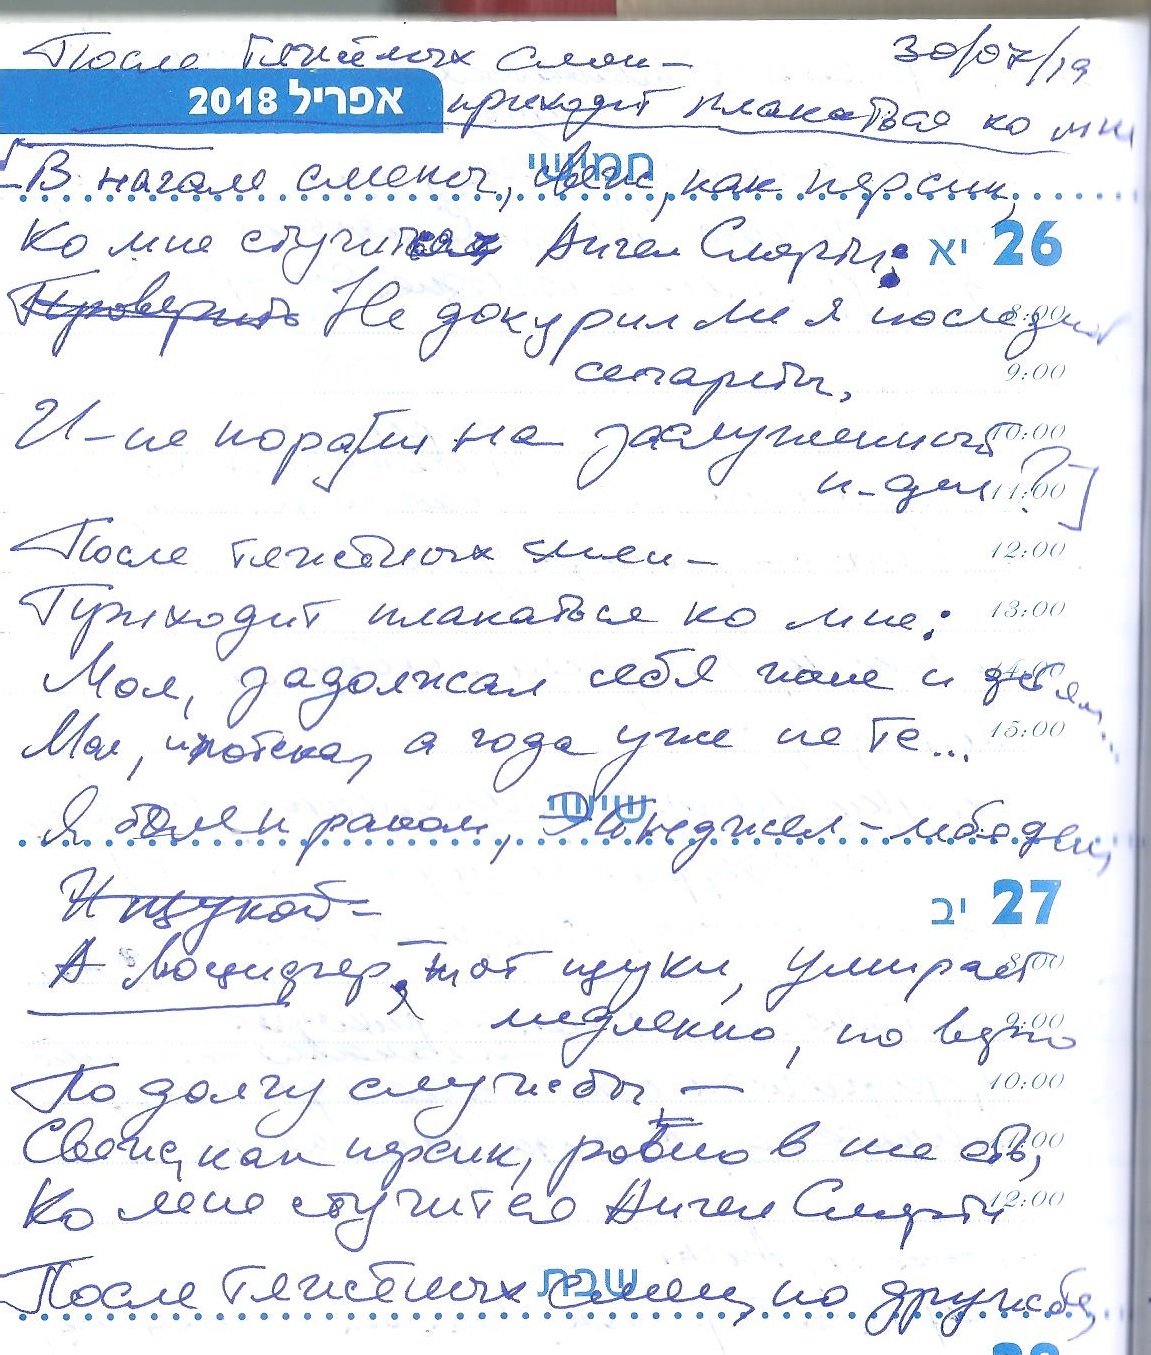 После тяжёлых смен – 30/07/19
אפריל 2018 приходит плакаться ко мне
חמישי
[В начале смены, свеж, как персик,
Ко мне стучится Ангел Смерти: יא 26
Проверить Не докурил ли я последней 8:00
сигареты, 9:00
И – не пора ли на заслуженный 10:00
11:00 ?]
После тяжёлых смен – 12:00
Приходит плакаться ко мне: 13:00
Мол, задолжал себя жене и детям... 14:00
Мол, ипотека, а года уже не те... 15:00
שישי
Я болен раком, Эйнджел – лебедем,
И щукой – יב 27
А Люцифер, тот щуки, умирает 8:00
медленно, но 9:00
По долгу службы, – 10:00
Свеж, как персик, ровно в шесть, 11:00
Ко мне стучится Ангел Смерти 12:00
שבת
После тяжёлых смен, по дружбе,